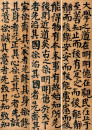 大學之道在明明德在親民在止於
至善知止而后有定定而后能
靜靜而后能安安而后能慮慮而
后能得物有本末事有終始知所先
後則近道矣古之欲明明德於天下
者先治其國欲治其國者先齊其
家欲齊其家者先修其身欲修
其身者先正其心欲正其心者先誠
其意欲誠其意者先致其知致知